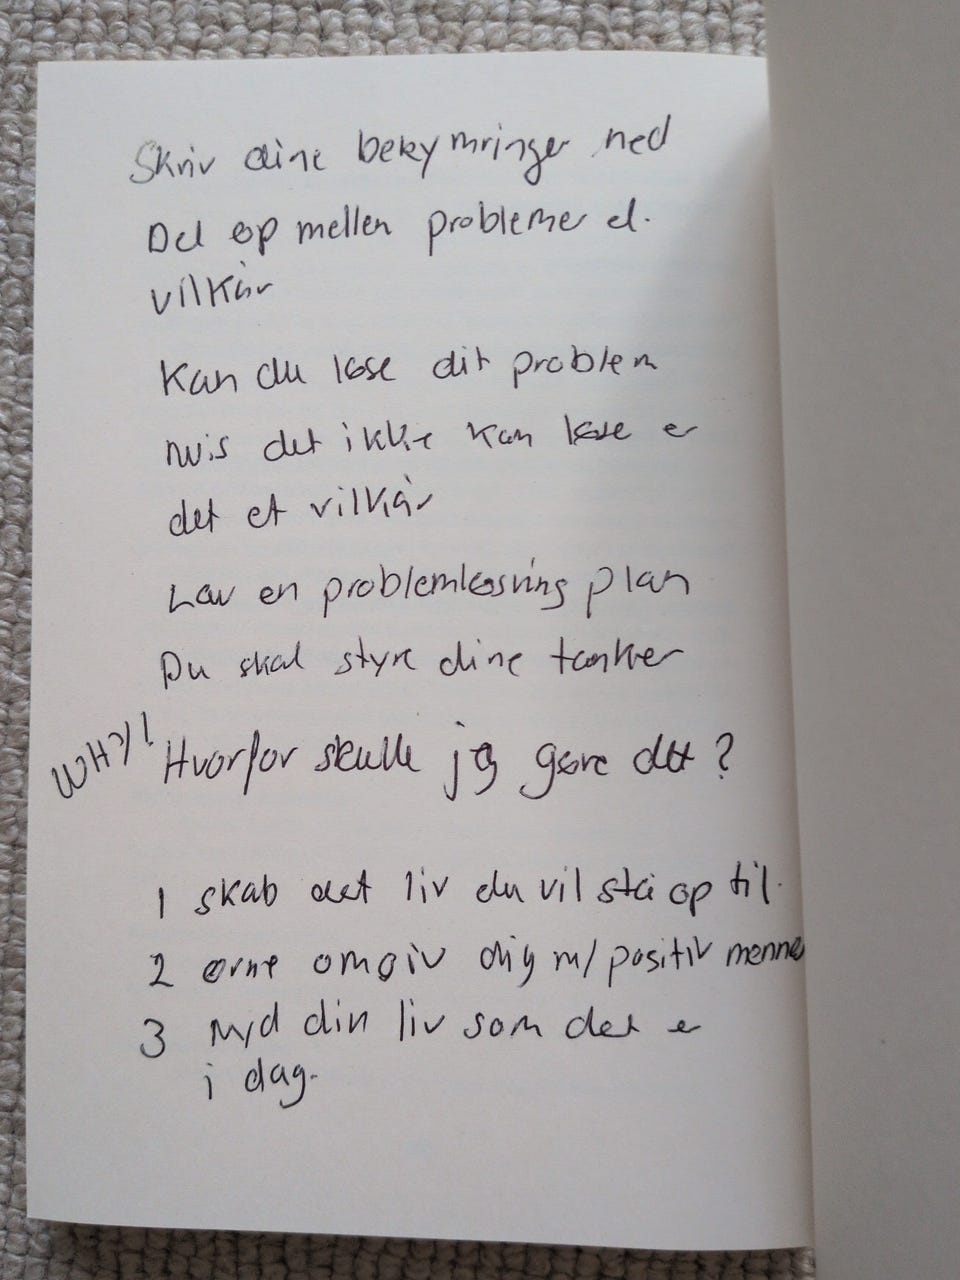 Skriv dine bekymringer ned
Del op mellem problemer el.
vilkår
Kan du løse dit problem
hvis det ikke kan løse er
det et vilkår
Lav en problemløsning plan
Du skal styre dine tanker
WHY! Hvorfor skulle jeg gøre det?
1 skab det liv du vil stå op til.
2 ørne omgiv dig m/ positiv menne
3 Nyd din liv som det er
i dag.